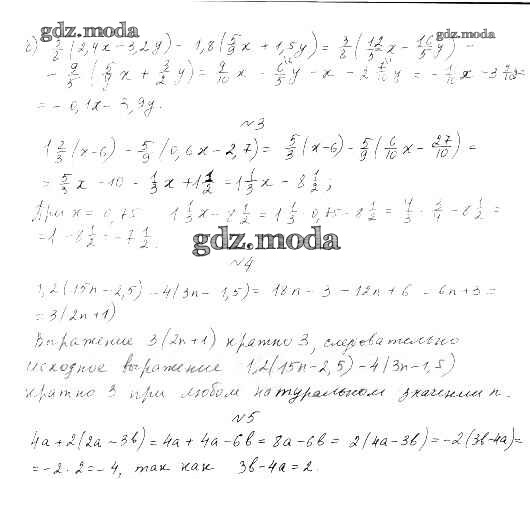 gdz.moda
б) 3/8 (2,4x - 3,2y) - 1,8(5/9 x + 1,5y) = 3/8 (12/5 x - 16/5 y) -
gdz.moda
- 9/5 (5/9 x + 3/2 y) = 9/10 x - 6/5 y - x - 2 7/10 y = - 1/10 x - 3 9/10 y =
= - 0,1x - 3,9y.
№3
1 2/3 (x-6) - 5/9 (0,6x - 2,7) = 5/3 (x-6) - 5/9 (6/10 x - 27/10) =
= 5/3 x - 10 - 1/3 x + 1 1/2 = 1 1/3 x - 8 1/2 ;
При x = 0,75 1 1/3 x - 8 1/2 = 1 1/3 · 0,75 - 8 1/2 = 4/3 · 3/4 - 8 1/2 =
= 1 - 8 1/2 = - 7 1/2 .
gdz.moda
№4
1,2(15n-2,5) - 4(3n - 1,5) = 18n - 3 - 12n + 6 = 6n + 3 =
= 3(2n+1)
Выражение 3(2n+1) кратно 3, следовательно
исходное выражение 1,2(15n-2,5) - 4(3n-1,5)
кратно 3 при любом натуральном значении n.
№5
4a + 2(2a - 3b) = 4a + 4a - 6b = 8a - 6b = 2(4a - 3b) = -2(3b-4a) =
= -2 · 2 = -4, так как 3b - 4a = 2.